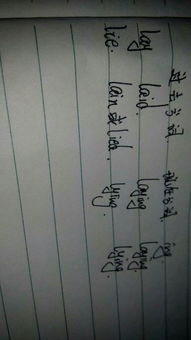 过去分词. 现在分词. ing
lay laid. laying laying.
lie. lain或lied. lying. lying.